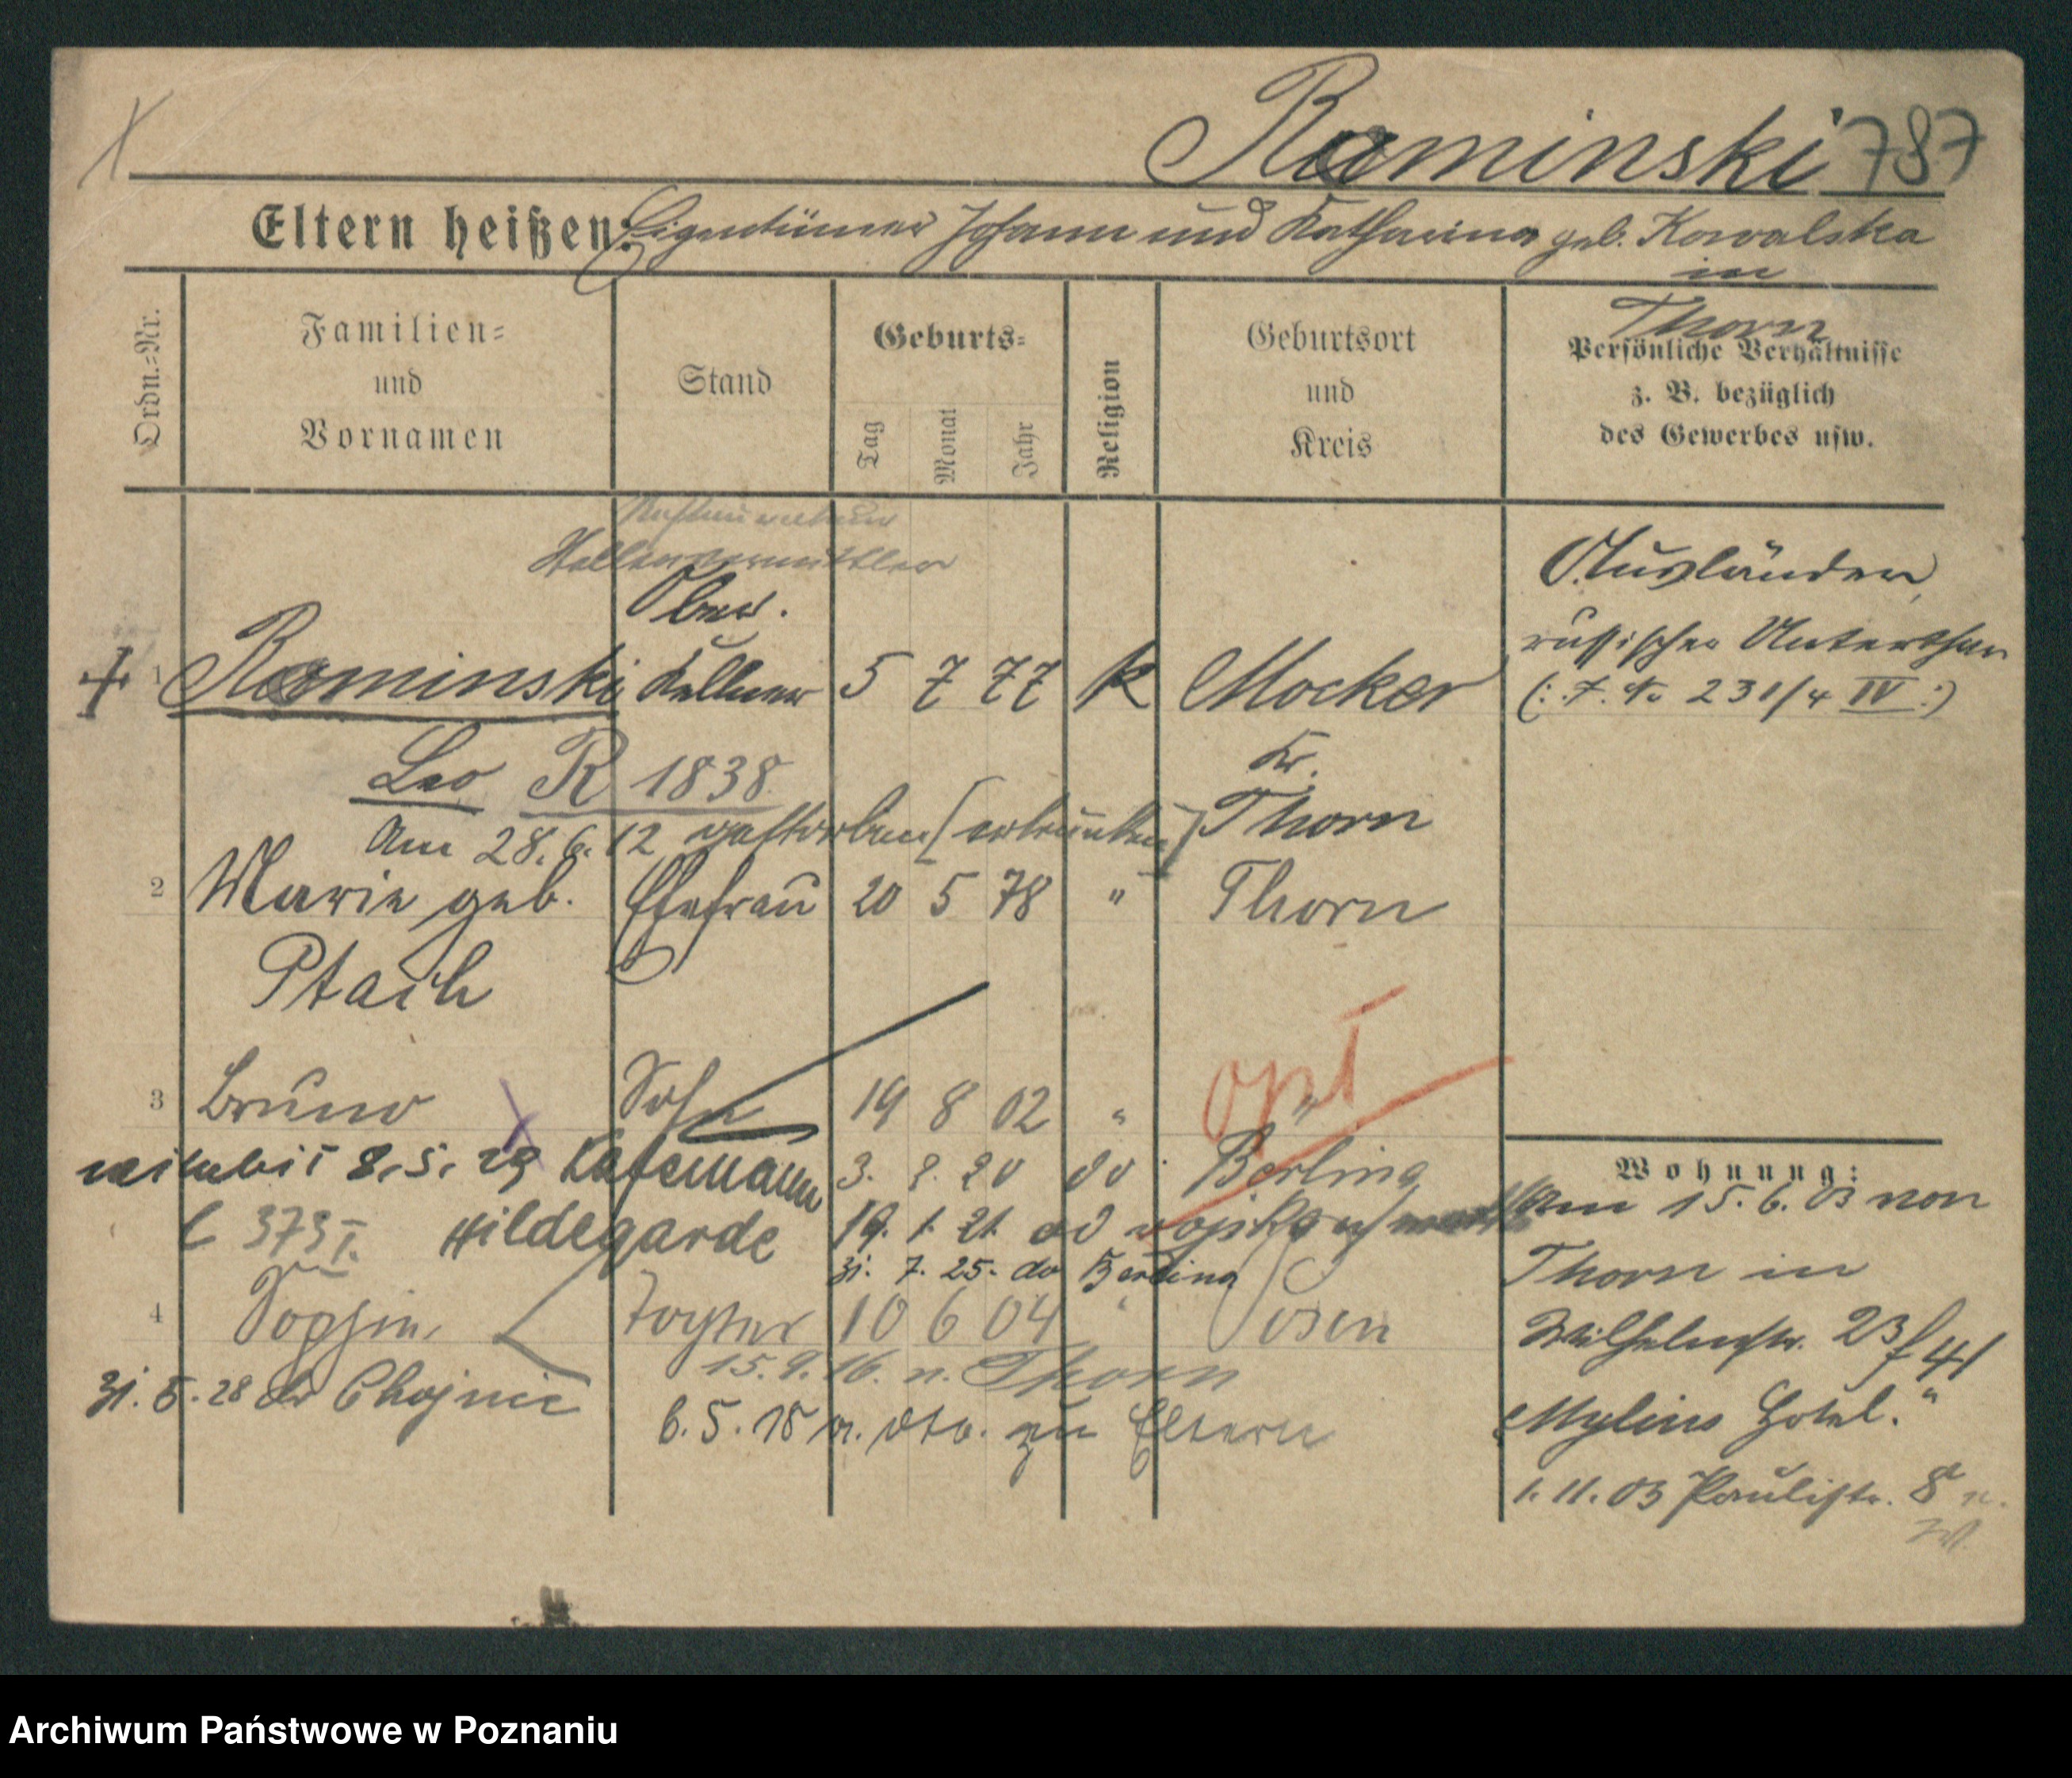 Raminski 787
Eltern heißen: Eigentümer Johann und Katharina geb. Kowalska
in
Thorn
Ordn.=Nr.
Familien=
und
Vornamen
Stand
Geburts=
Tag
Monat
Jahr
Religion
Geburtsort
und
Kreis
Persönliche Verhältnisse
z. B. bezüglich
des Gewerbes usw.
Stellenvermittler
Ober.
1 Raminski Kellner 5 7 77 k Mocker
Leo R 1838
Kr.
Thorn
Am 28.6.12 gestorben [ertrunken]
Ausländer,
russischer Unterthan
(: 231/4 IV :)
2 Marie geb. Ehefrau 20 5 78 " Thorn
Ptach
3 Bruno Sohn 19 8 02 " "
opt
8.5.29 Kafemann 3. 2. 20 do Berlina
373 I. Hildegarde 19. 1. 21. od
31. 7. 25. do Berlina
4 Sophie Tochter 10 6 04 " Posen
15.9.16. n. Thorn
31.5.28 do Chojnic
6.5.18 v. dto. zu Eltern
Wohnung:
Am 15.6.03 von
Thorn in
Wilhelmstr. 23 f 41
Mylius Hotel."
1.11.03 Paulistr. 8
Archiwum Państwowe w Poznaniu